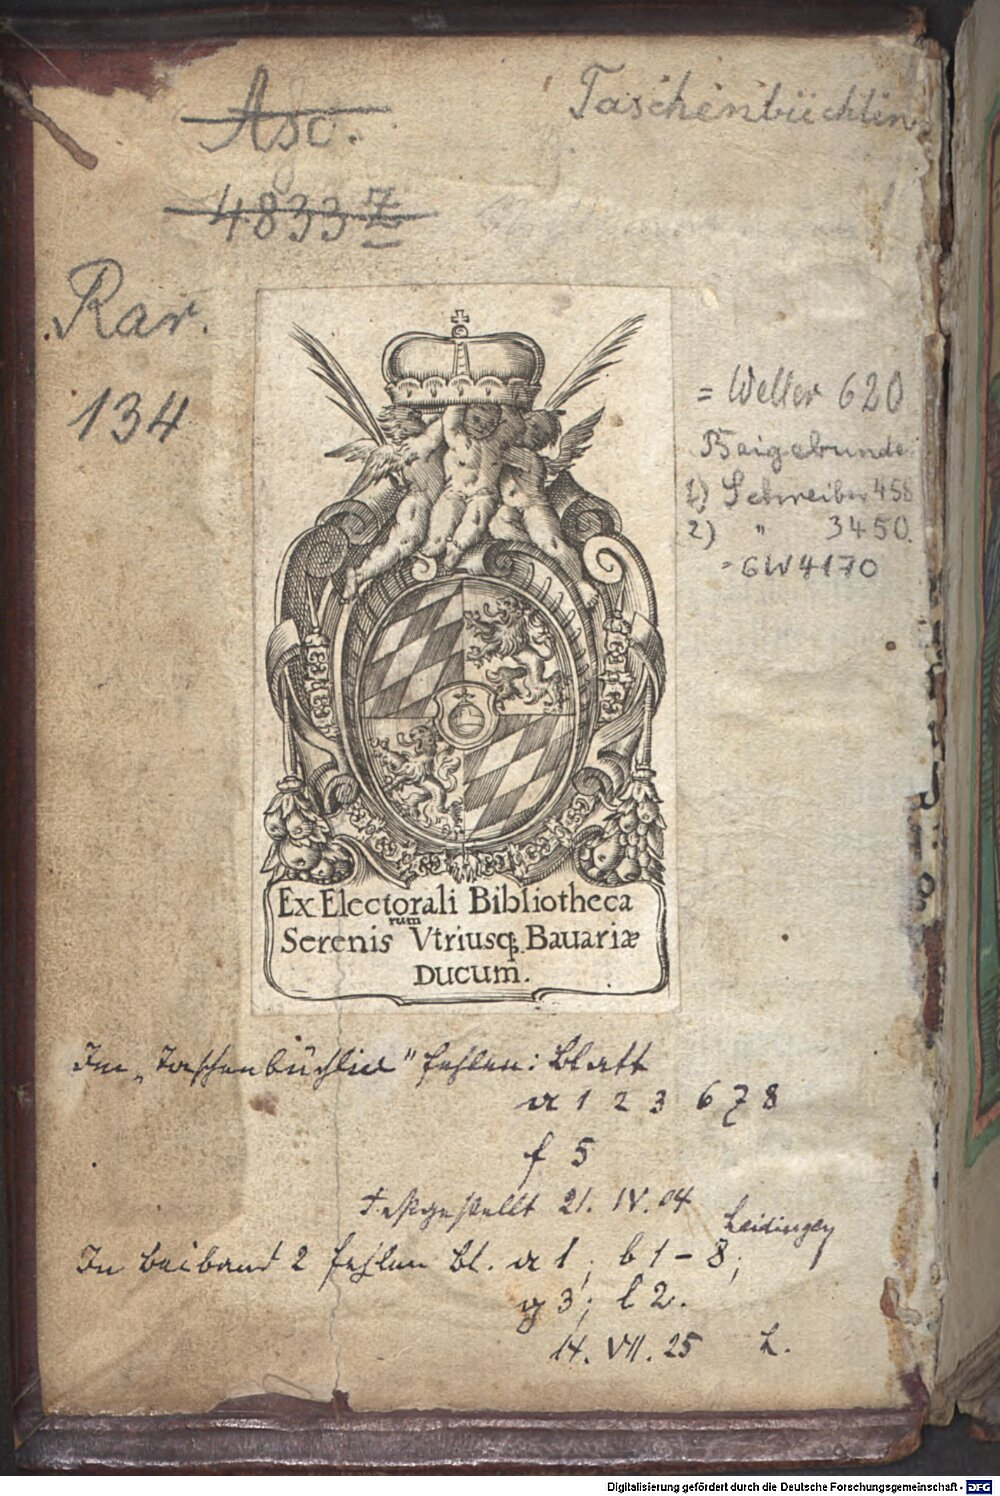 Asc.
4833 Z
Taschenbüchlin
Rar.
134
= Weller 620
Beigebunden
1) Schreiber 458
2) " 3450.
= GW 4170
Ex Electorali Bibliotheca
Serenisrum Vtriusq. Bauariæ
Ducum.
Im „Taschenbüchlin" fehlen: Blatt
a 1 2 3 6 7 8
f 5
Festgestellt 21. IV. 04
Leidinger
In Beiband 2 fehlen Bl. a 1; b 1 – 8;
g 3; l 2.
14. VII. 25 L.
Digitalisierung gefördert durch die Deutsche Forschungsgemeinschaft - DFG